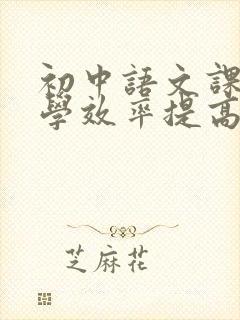 初中語文課
學效率提高
芝麻花